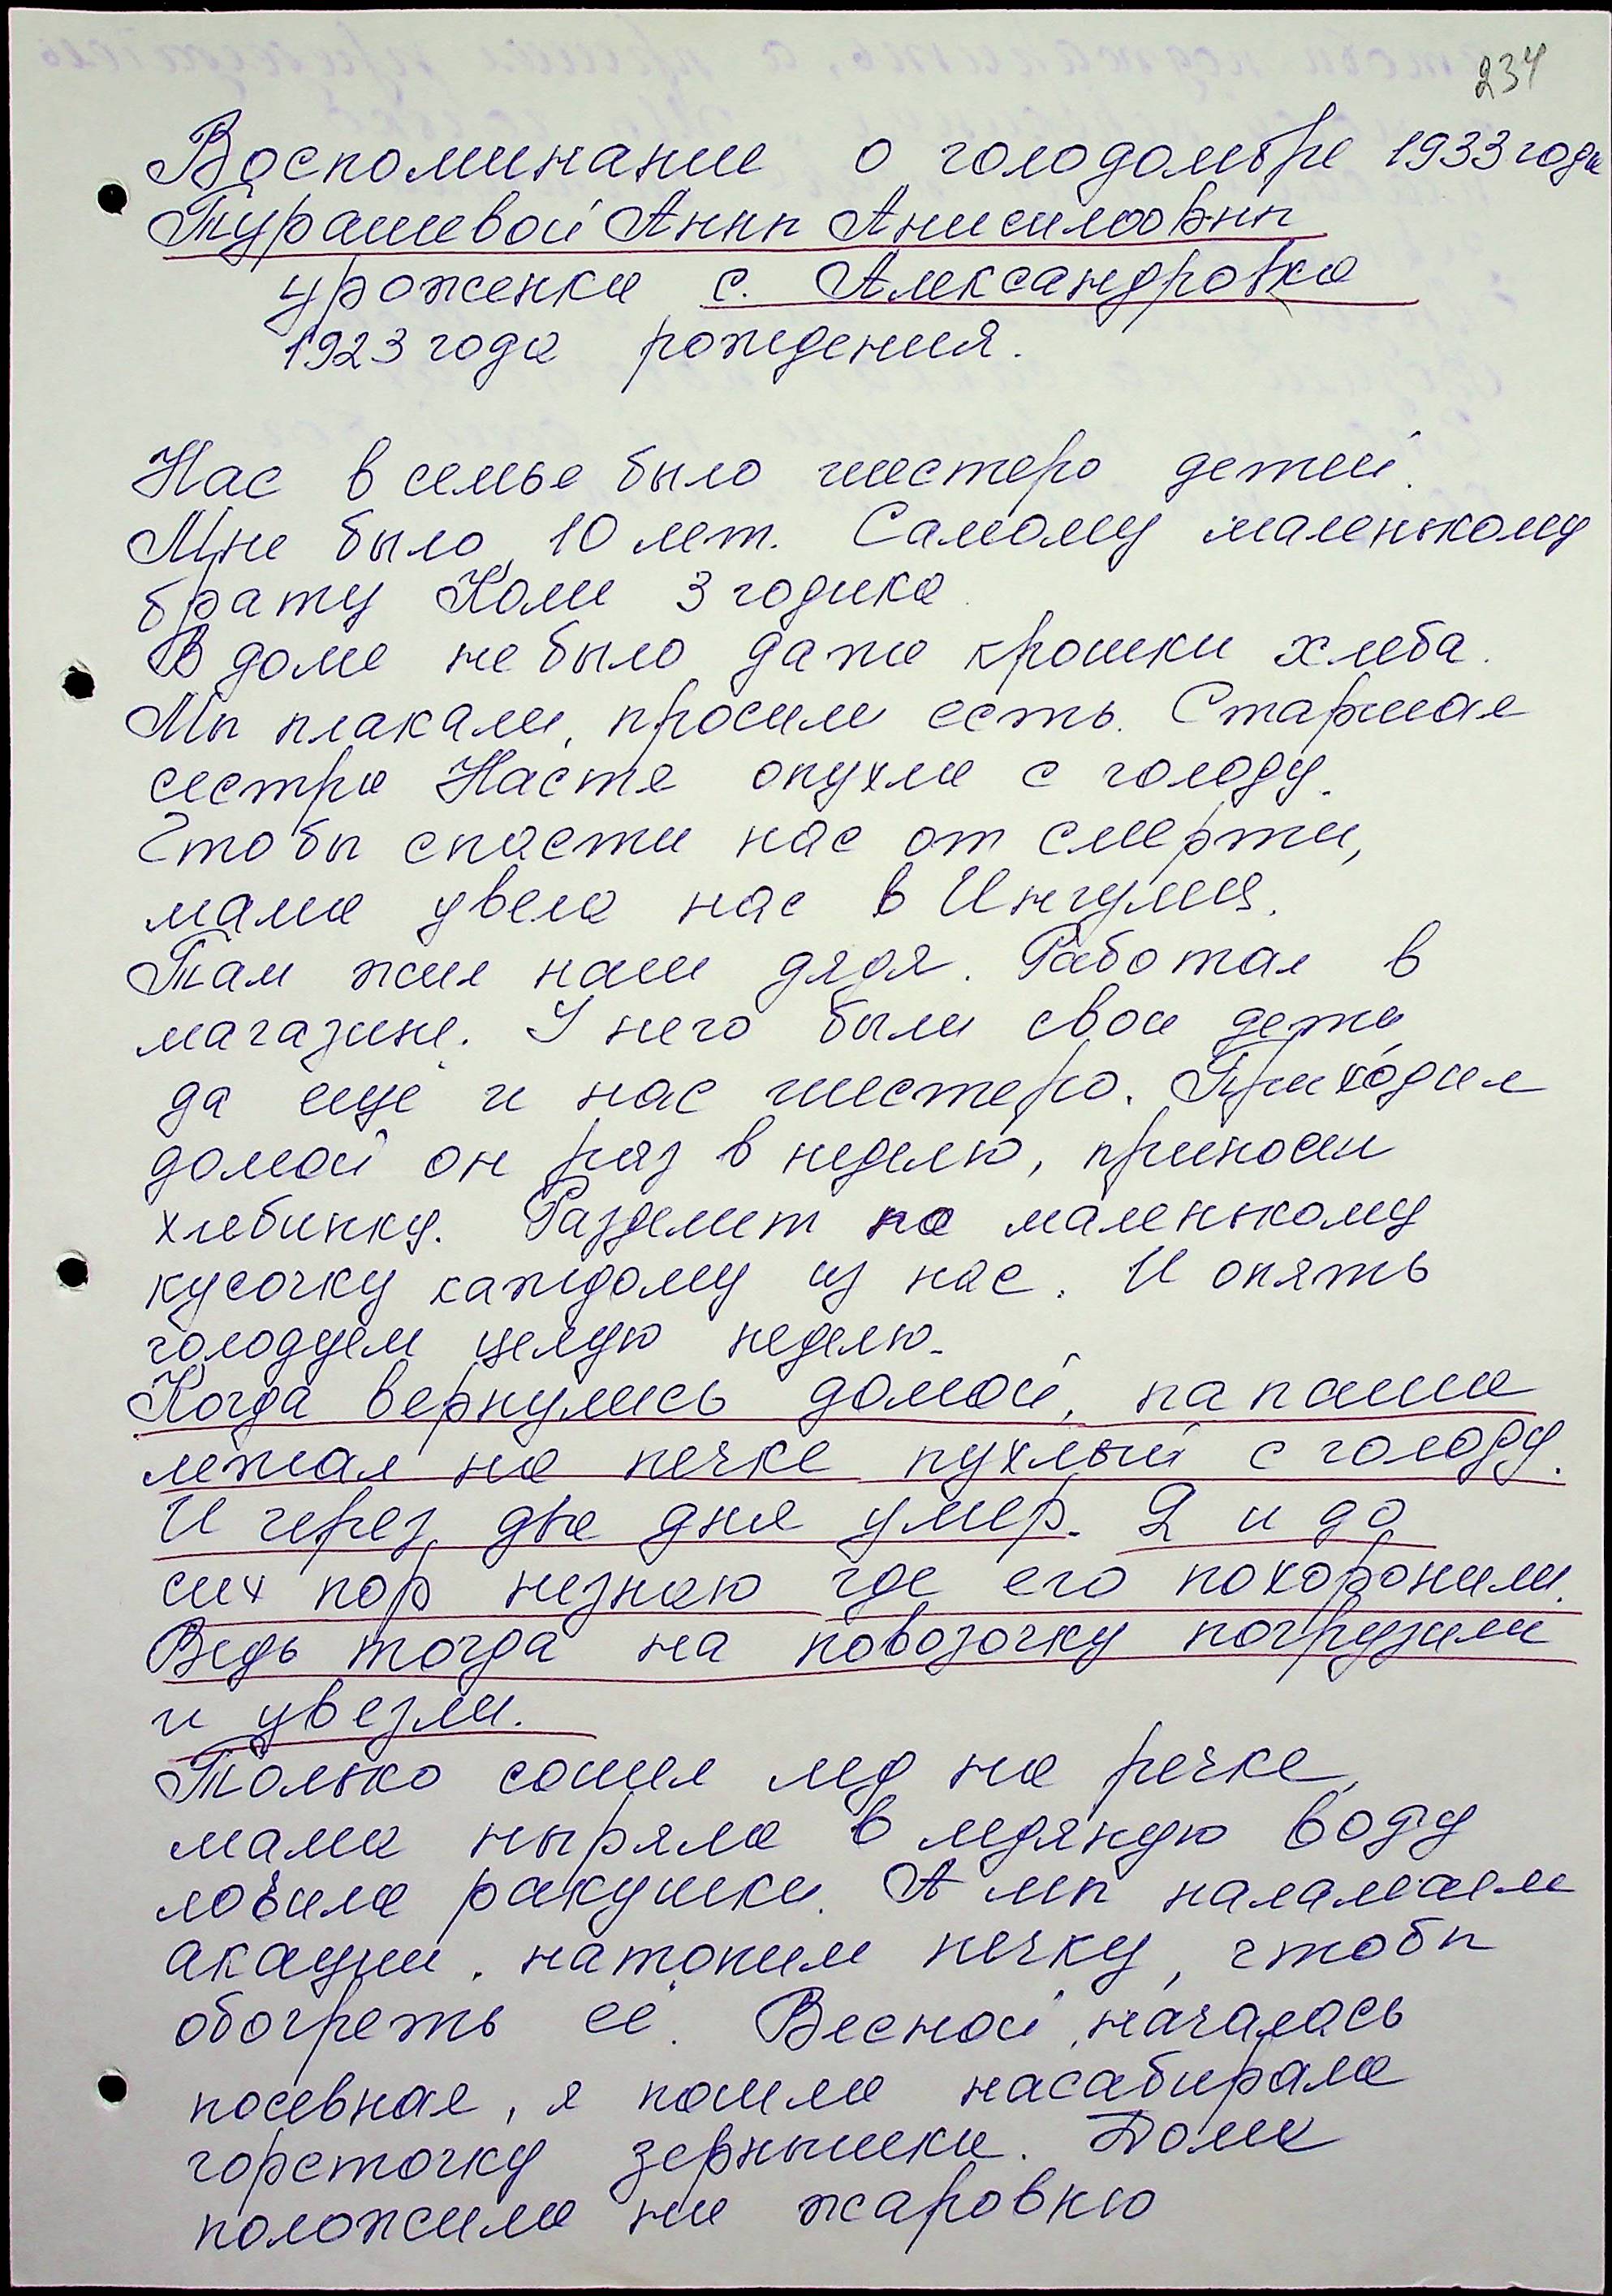 234
Воспоминание о голодоморе 1933 года
Турашевой Анны Анисимовны
уроженки с. Александровка
1923 года рождения.
Нас в семье было шестеро детей.
Мне было 10 лет. Самому маленькому
брату Коли 3 годика
В доме не было даже крошки хлеба.
Мы плакали, просили есть. Старшая
сестра Настя опухла с голоду.
Чтобы спасти нас от смерти,
мама увела нас в Ингулец.
Там жил наш дядя. Работал в
магазине. У него были свои дети
да ещё и нас шестеро. Приходил
домой он раз в неделю, приносил
хлебинку. Разделит по маленькому
кусочку каждому из нас. И опять
голодуем целую неделю.
Когда вернулись домой, папаша
лежал на печке пухлый с голоду.
И через два дня умер. Я и до
сих пор незнаю где его похоронили.
Ведь тогда на повозочку погрузили
и увезли.
Только сошел лед на речке,
мама ныряла в ледяную воду
ловила ракушки. А мы наламаем
акации, натопим печку, чтобы
обогреть её. Весной началась
посевная, я пошла насабирала
горсточку зернышки. Дома
положила на жаровню